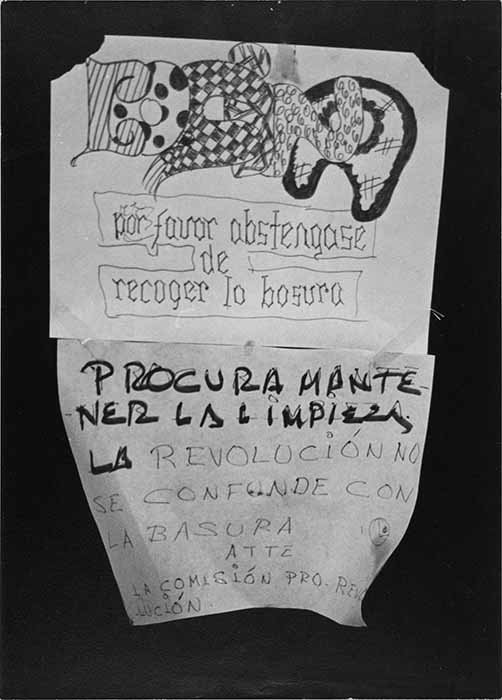 por favor abstengase
de
recoger la basura
PROCURA MANTE-
NER LA LIMPIEZA.
LA REVOLUCIÓN NO
SE CONFUNDE CON
LA BASURA
ATTE
LA COMISIÓN PRO. REVO
LUCIÓN.